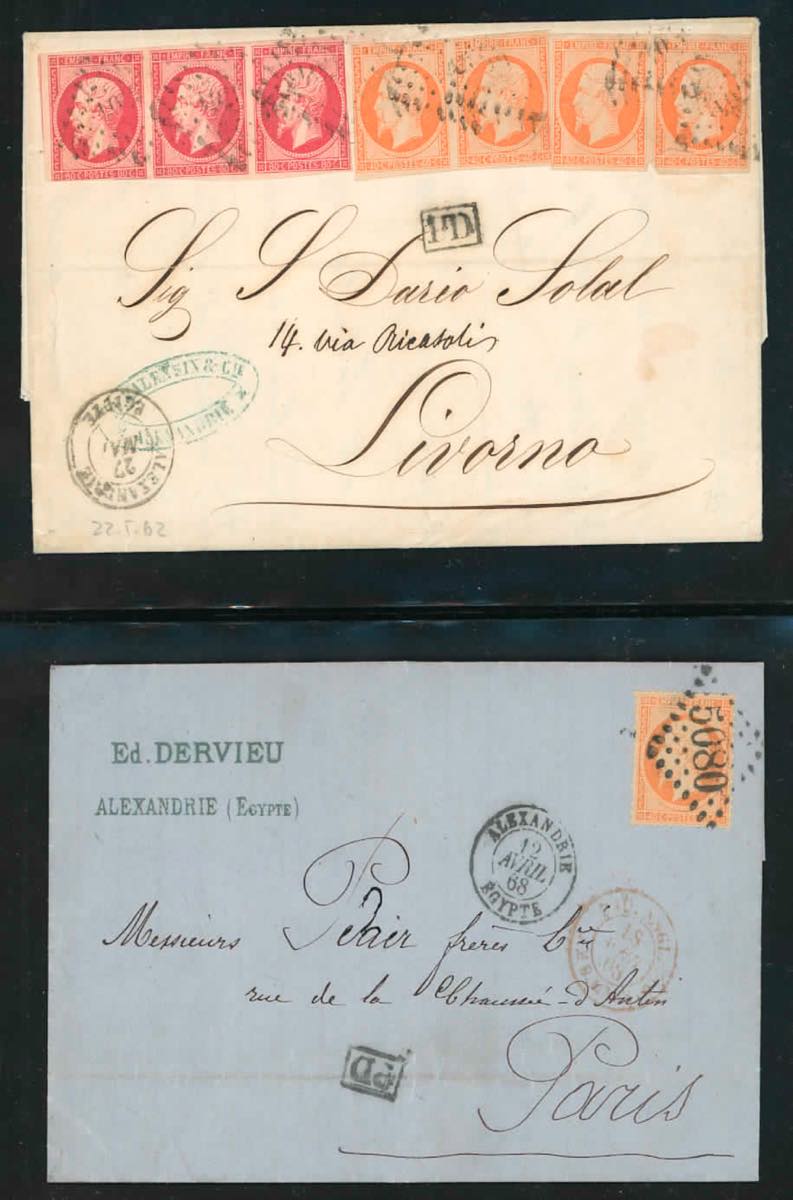 EMPIRE FRANC. EMPIRE FRANC. EMPIRE FRANC. EMPIRE FRANC. EMPIRE FRANC. EMPIRE FRANC. EMPIRE FRANC.
80·C·POSTES·80·C 80·C·POSTES·80·C 80·C·POSTES·80·C 40·C·POSTES·40·C 40·C·POSTES·40·C 40·C·POSTES·40·C 40·C·POSTES·40·C
PD
Sig S Dario Solal
14. via Ricasoli
Livorno
& Cie
ALEXANDRIE
ALEXANDRIE
27
MAI
EGYPTE
Ed. DERVIEU
ALEXANDRIE (EGYPTE)
5080
ALEXANDRIE
12
AVRIL
68
EGYPTE
Messieurs frères
rue de la Chaussée-d'Antin
Paris
PD